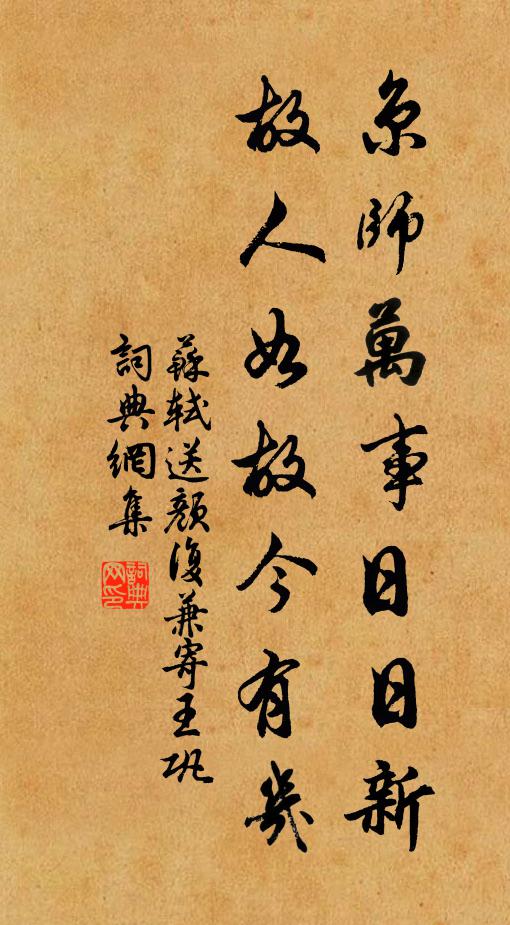 京師萬事日日新
故人如故今有幾
蘇軾送顏復兼寄王巩
詞典網集
詞典网印